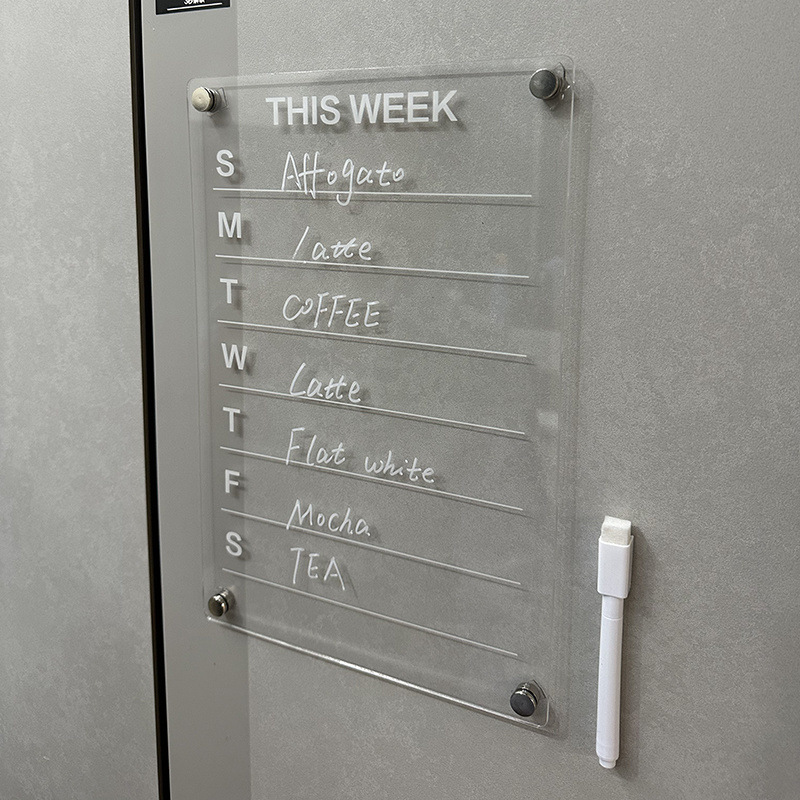 THIS WEEK
S Affogato
M latte
T COFFEE
W Latte
T Flat white
F Mocha
S TEA